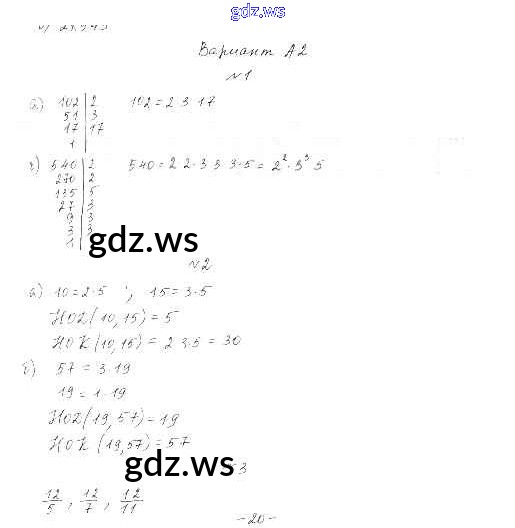 gdz.ws
Вариант А2
№1
а) 102 | 2   102 = 2 3 17
51 | 3
17 | 17
1
б) 540 | 2   540 = 2 2·3 3 3·5 = 2²·3³ 5
270 | 2
135 | 5
27 | 3
9 | 3
3 | 3
1
gdz.ws
№2
а) 10 = 2·5 ; 15 = 3·5
НОД (10, 15) = 5
НОК (10, 15) = 2 3·5 = 30
б) 57 = 3·19
19 = 1·19
НОД (19, 57) = 19
НОК (19, 57) = 57
gdz.ws
3
12/5 , 12/7 , 12/11
- 20 -